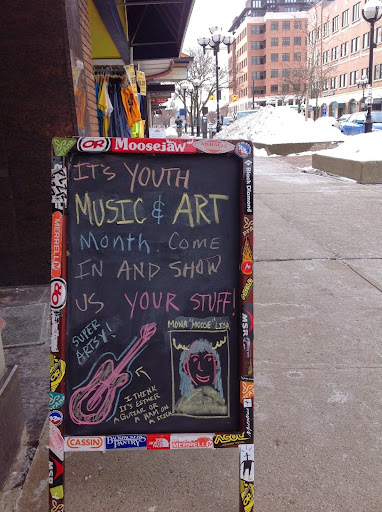 OR Moosejaw
IT'S YOUTH
MUSIC & ART
MONTH. COME
IN AND SHOW
US YOUR STUFF!
SUPER
ARTSY!
MONA "MOOSE" LISA
I THINK
IT'S EITHER
A GUITAR OR
A HAM ON
A STICK
Black Diamond
MERRELL
OR
MSR
MSR
CASSIN
BACKPACKER'S
PANTRY
MERRELL
ASOLO